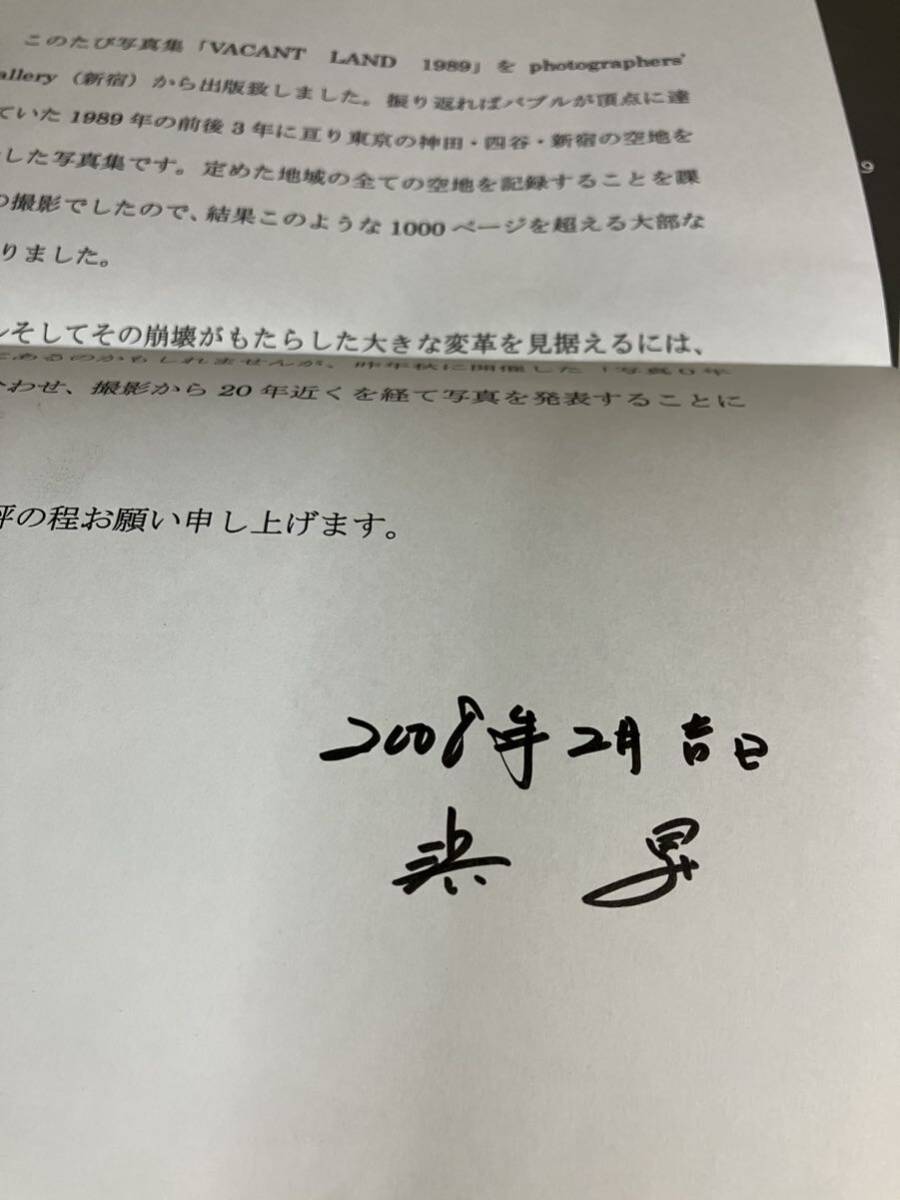 このたび写真集「VACANT LAND 1989」を photographers'
allery(新宿)から出版致しました。振り返ればバブルが頂点に達
ていた 1989 年の前後 3 年に亘り東京の神田・四谷・新宿の空地を
した写真集です。定めた地域の全ての空地を記録することを課
の撮影でしたので、結果このような 1000 ページを超える大部な
りました。
ルそしてその崩壊がもたらした大きな変革を見据えるには、
であるのかもしれませんが、昨年秋に開催した「写真0年
合わせ、撮影から 20 年近くを経て写真を発表することに
評の程お願い申し上げます。
2008年2月吉日
濱 昇
9